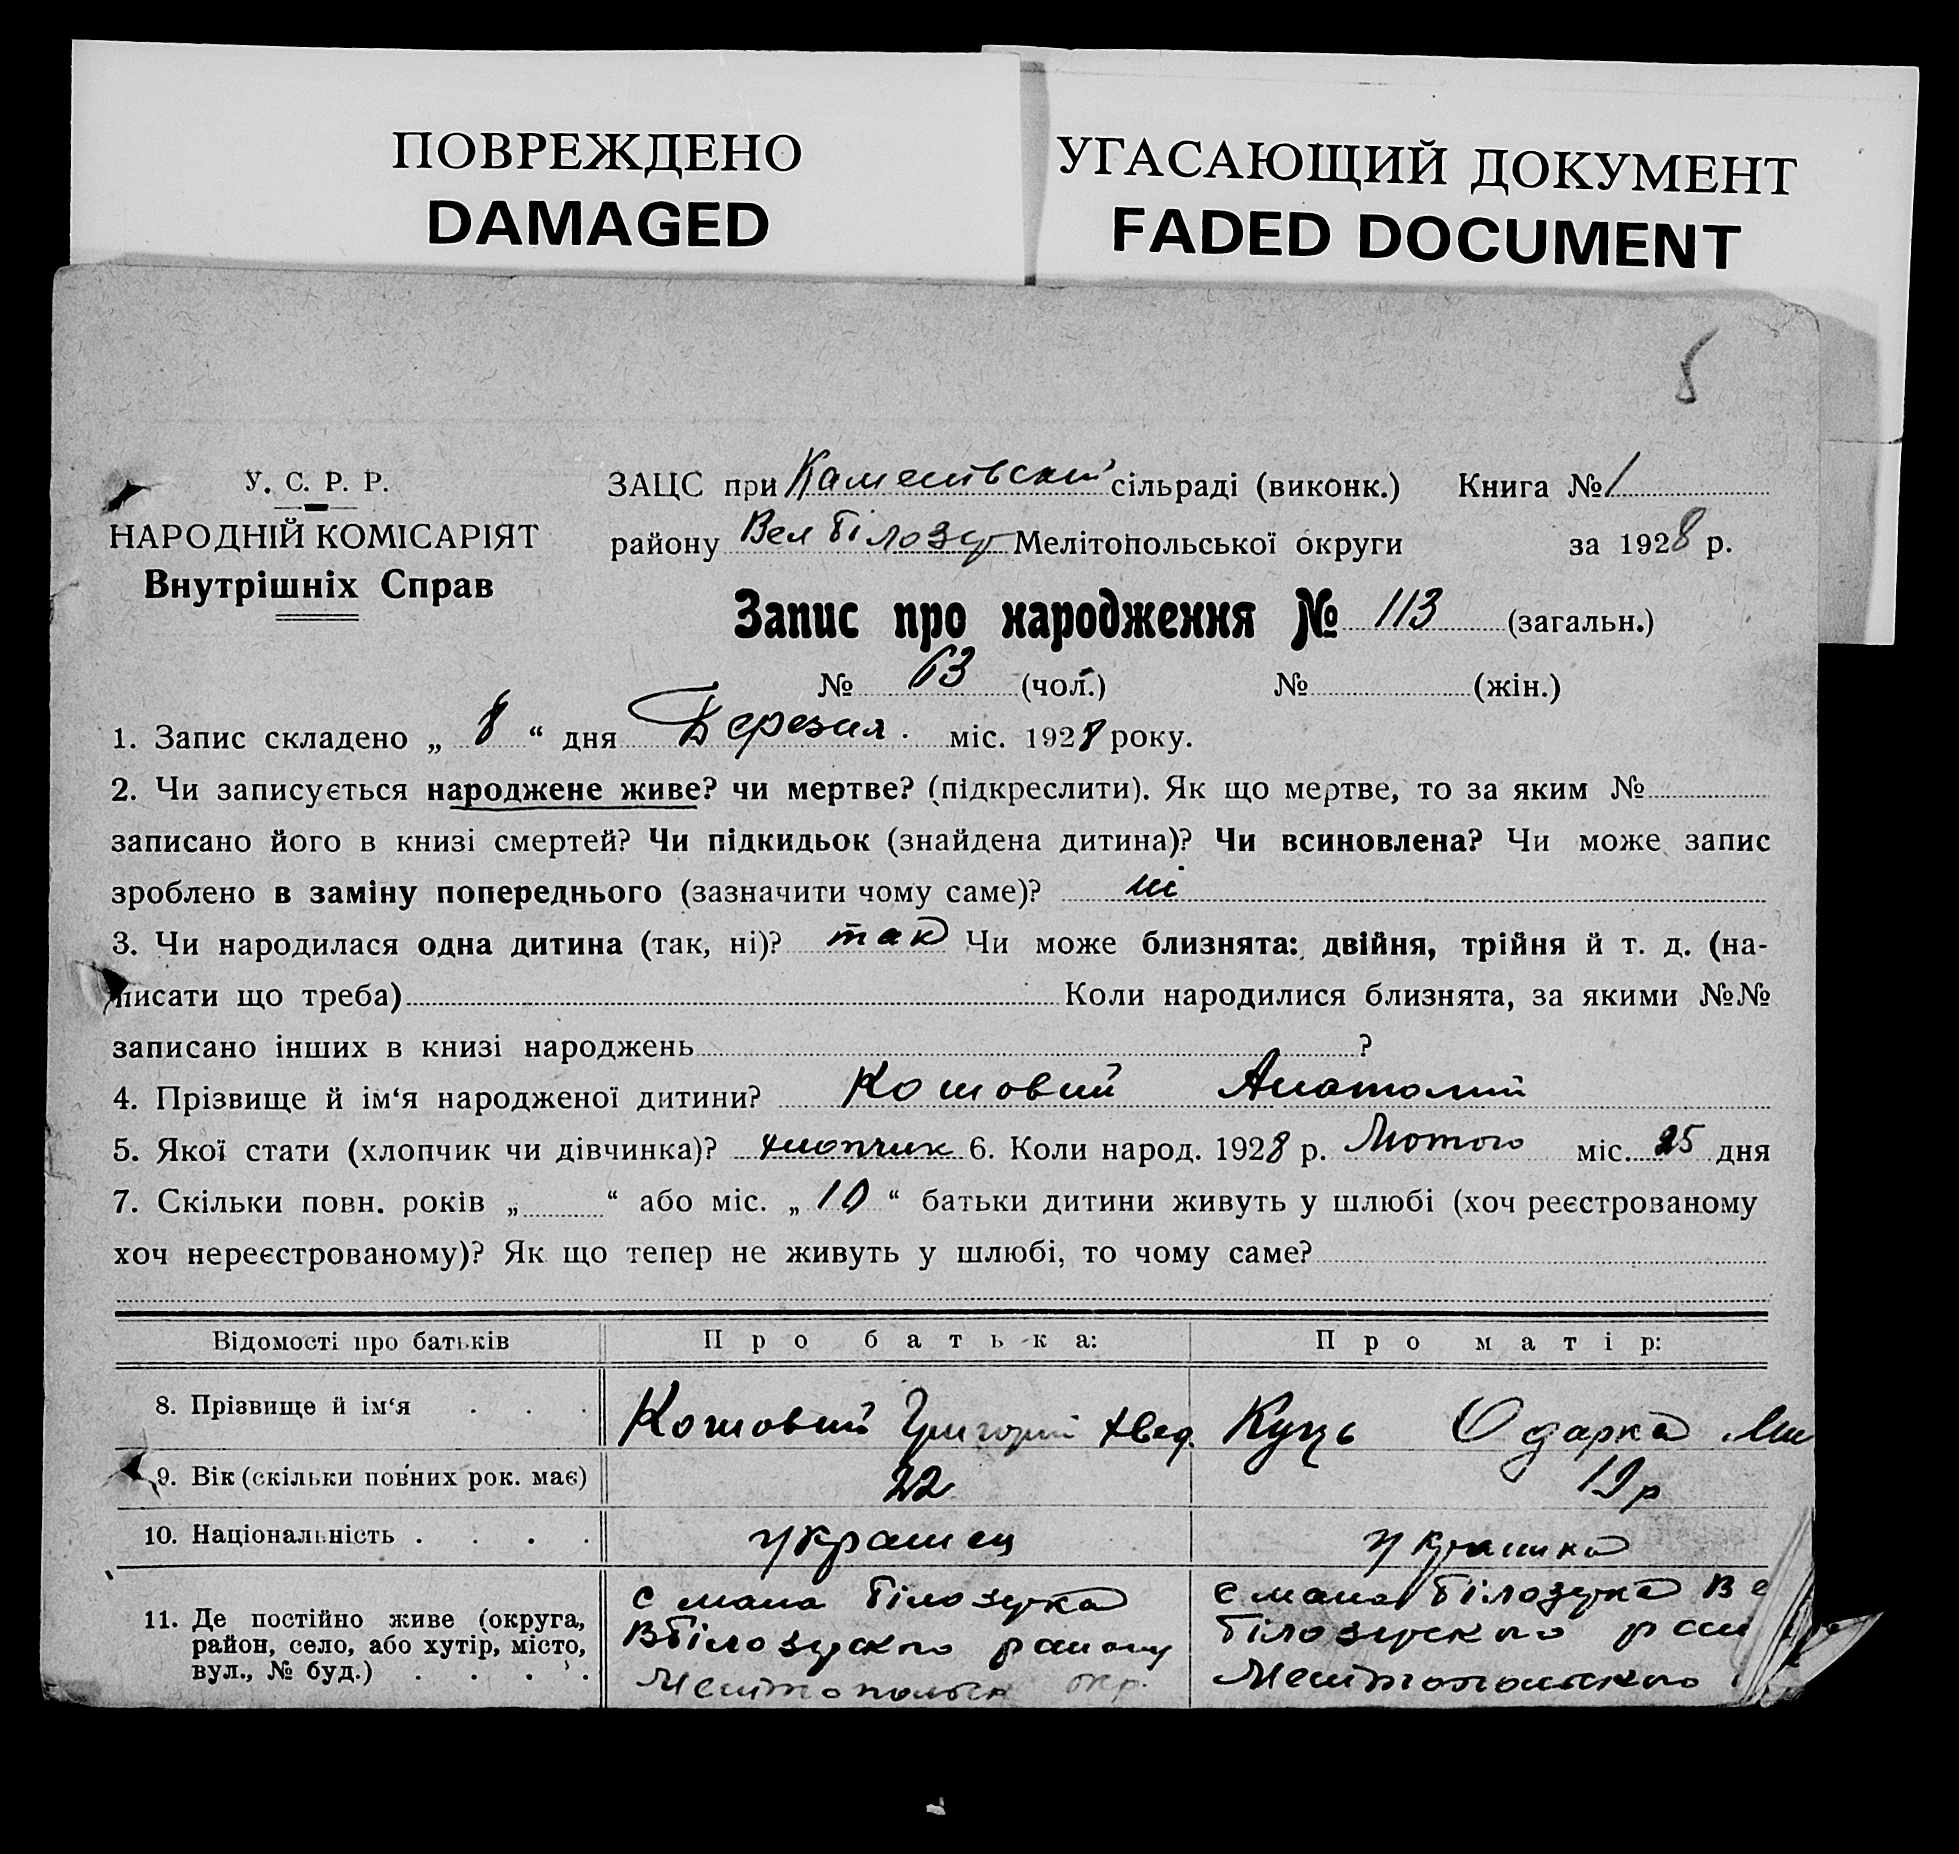 ПОВРЕЖДЕНО
DAMAGED
УГАСАЮЩИЙ ДОКУМЕНТ
FADED DOCUMENT
У. С. Р. Р.
НАРОДНІЙ КОМІСАРІЯТ
Внутрішніх Справ
ЗАЦС при сільраді (виконк.) Книга № 1
району Вел Білозер Мелітопольської округи за 1928 р.
Запис про народження № 113 (загальн.)
№ 63 (чол.) № (жін.)
1. Запис складено „ 8 “ дня Березня міс. 1928 року.
2. Чи записується народжене живе? чи мертве? (підкреслити). Як що мертве, то за яким №
записано його в книзі смертей? Чи підкидьок (знайдена дитина)? Чи всиновлена? Чи може запис
зроблено в заміну попереднього (зазначити чому саме)? ні
3. Чи народилася одна дитина (так, ні)? так Чи може близнята: двійня, трійня й т. д. (на-
писати що треба) Коли народилися близнята, за якими №№
записано інших в книзі народжень ?
4. Прізвище й ім‘я народженої дитини? Кошовий Анатолий
5. Якої стати (хлопчик чи дівчинка)? хлопчик 6. Коли народ. 1928 р. Лютого міс. 25 дня
7. Скільки повн. років „ “ або міс. „ 10 “ батьки дитини живуть у шлюбі (хоч реєстрованому
хоч нереєстрованому)? Як що тепер не живуть у шлюбі, то чому саме?
Відомості про батьків Про батька: Про матір:
8. Прізвище й ім‘я Кошовий Григорій Хвед. Куць Одарка
9. Вік (скільки повних рок. має) 22 19 р
10. Національність українец українка
11. Де постійно живе (округа,
район, село, або хутір, місто,
вул., № буд.)
с мала Білозерка
ВБілозерского району
окр.
с мала Білозерка Ве
Білозерского